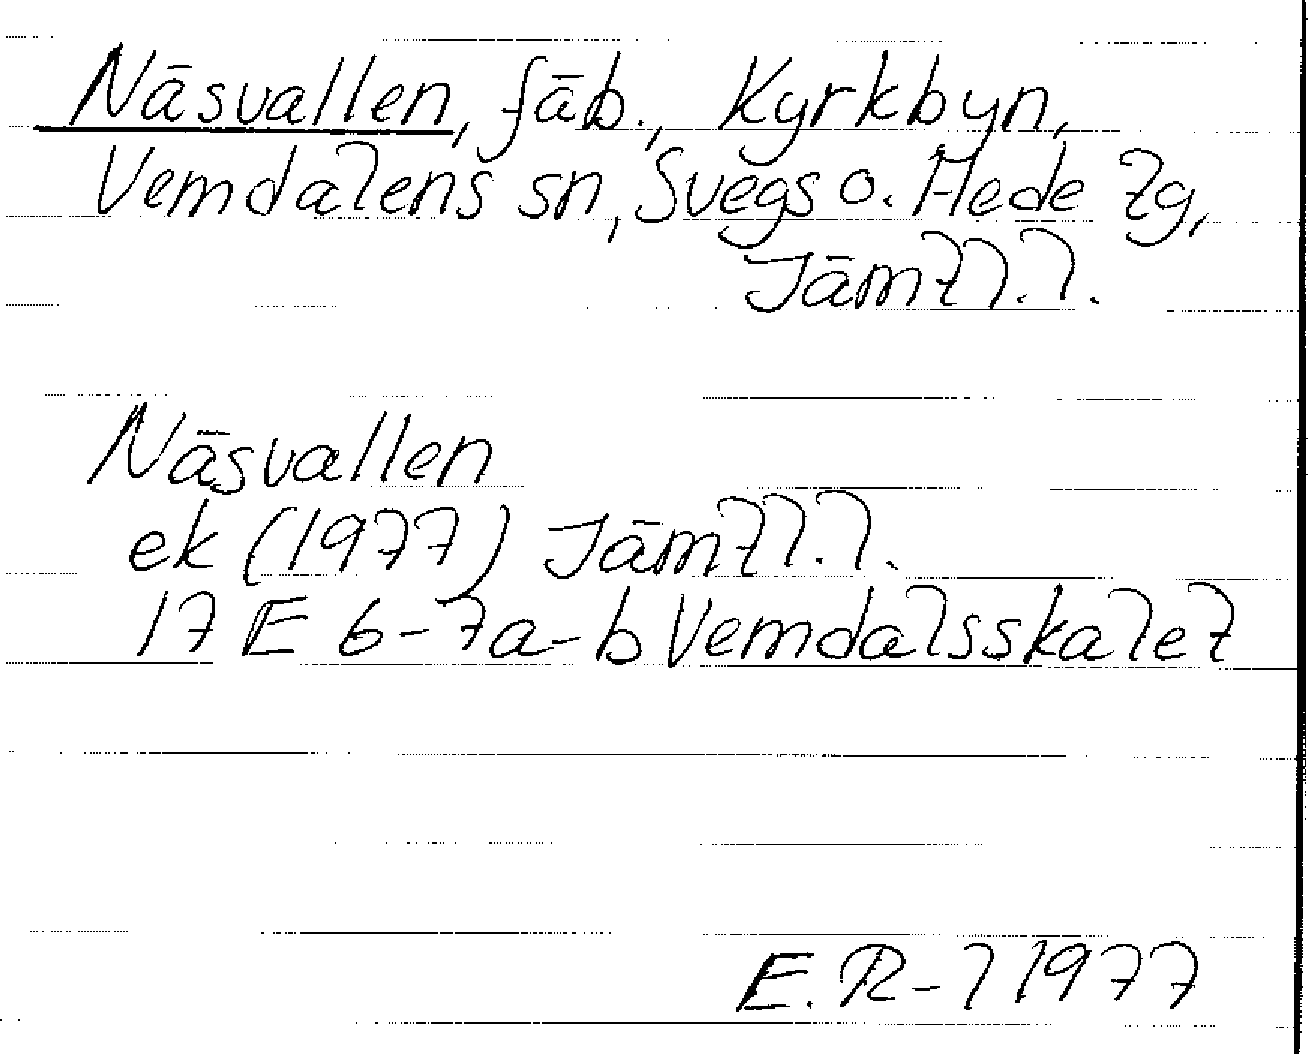 Näsvallen, fäb., Kyrkbyn,
Vemdalens sn, Svegs o. Hede tg,
Jämtl.l.
Näsvallen
ek (1977) Jämtl.l.
17 E 6-7a-b Vemdalsskalet
E. R-l 1977